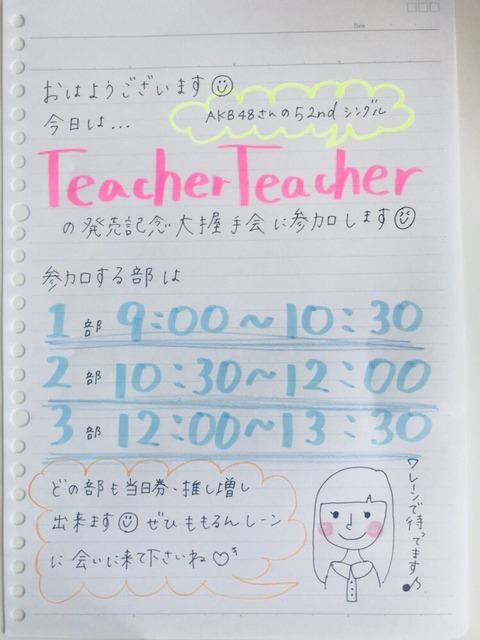 Date
おはようございます
今日は...
AKB48さんの52ndシングル
Teacher Teacher
の発売記念大握手会に参加します
参加する部は
1部 9:00~10:30
2部 10:30~12:00
3部 12:00~13:30
どの部も当日券、推し増し
出来ます ぜひももるんレーン
に会いに来て下さいね♡
レーンで待ってます♪